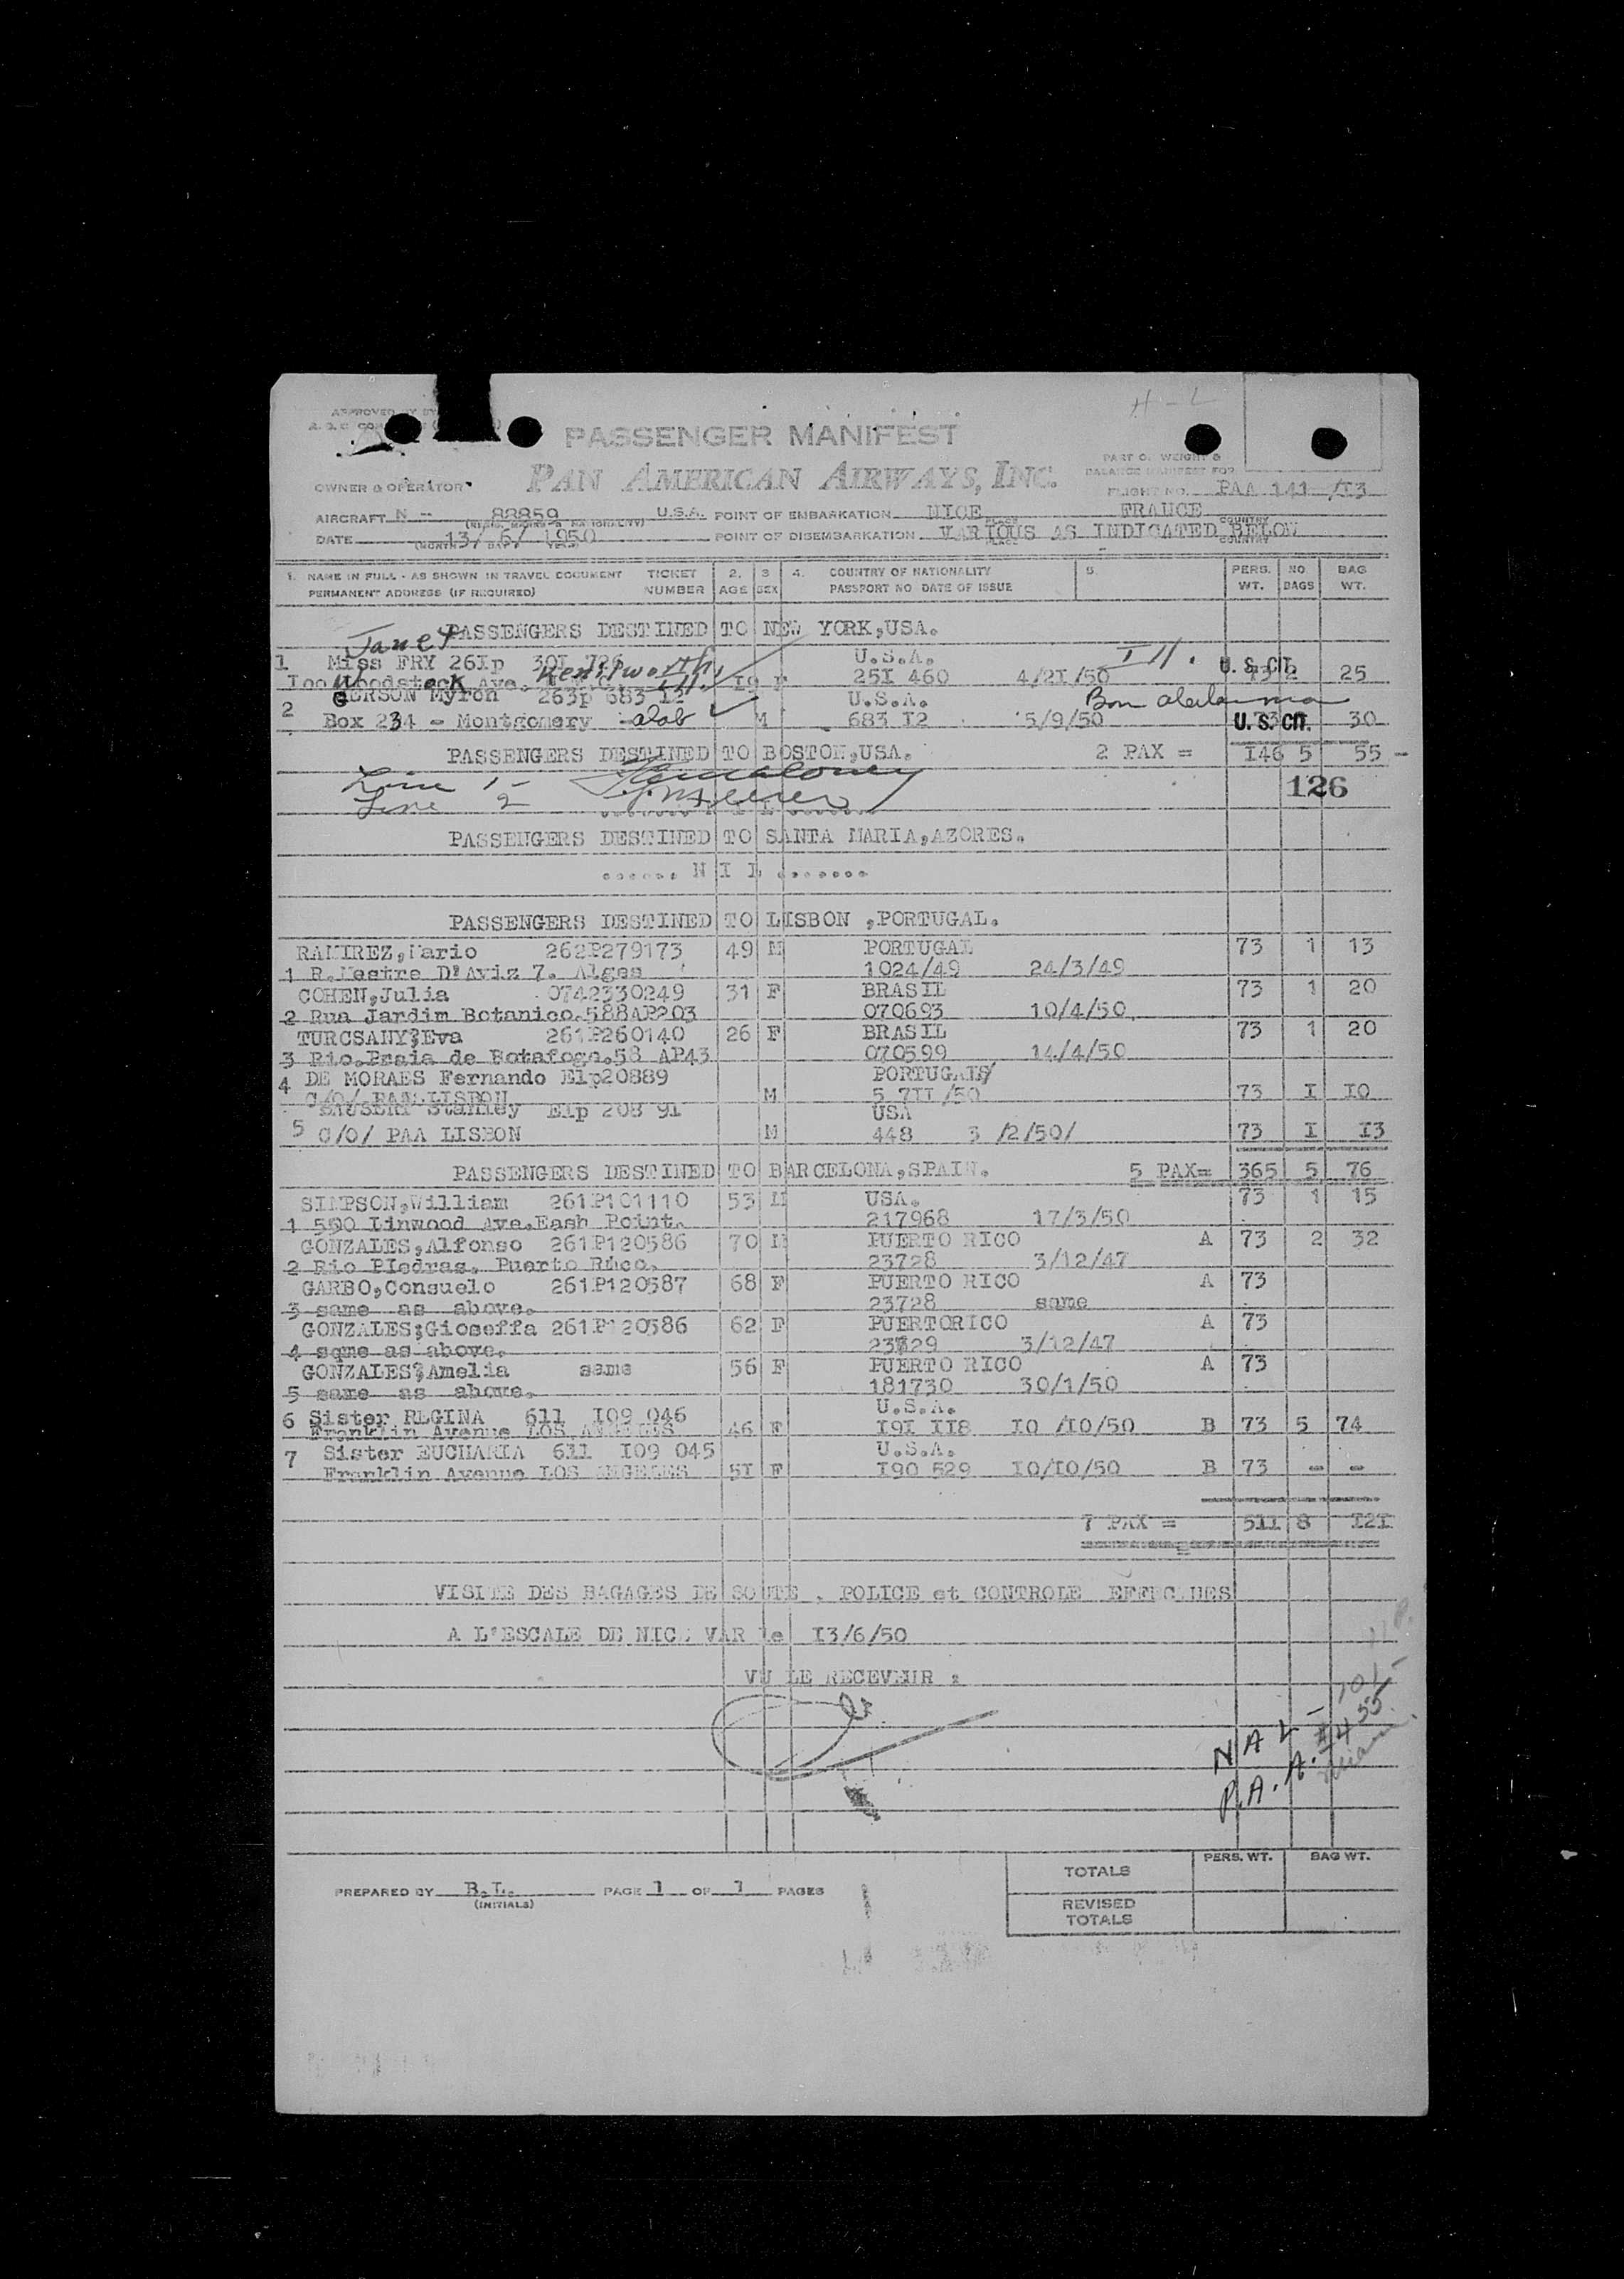 H - L
APPROVED BY
PASSENGER MANIFEST
PAN AMERICAN AIRWAYS, INC.
PART OF WEIGHT &
BALANCE MANIFEST FOR
OWNER & OPERATOR
FLIGHT NO. PAA 141 /13
AIRCRAFT N - 88859 U.S.A. POINT OF EMBARKATION NICE FRANCE
DATE 13/ 6/ 1950 POINT OF DISEMBARKATION VARIOUS AS INDICATED BELOW
1. NAME IN FULL - AS SHOWN IN TRAVEL DOCUMENT TICKET 2. 3 4. COUNTRY OF NATIONALITY 5. PERS. NO. BAG
PERMANENT ADDRESS (IF REQUIRED) NUMBER AGE SEX PASSPORT NO DATE OF ISSUE WT. BAGS WT.
PASSENGERS DESTINED TO NEW YORK,USA.
Janet
1 Miss FRY 26Ip 30I 726 U.S.A. Ill. U.S. CIT.
Ioo Woodstock Ave. Kenilworth, Ill. I9 F 25I 460 4/2I/50 73 2 25
GERSON Myron 263p 683 I2 U.S.A. Born alabama
2 Box 234 - Montgomery - alab M 683 I2 5/9/50 U.S. CIT. 30
PASSENGERS DESTINED TO BOSTON,USA. 2 PAX = I46 5 55 -
Line 1-
Line 2
126
PASSENGERS DESTINED TO SANTA MARIA,AZORES.
...... N I L .......
PASSENGERS DESTINED TO LISBON ,PORTUGAL.
RAMIREZ,Mario 262P279173 49 M PORTUGAL 73 1 13
1 R.Mestre D'Aviz 7. Alges 1024/49 24/3/49
COHEN,Julia 0742330249 31 F BRASIL 73 1 20
2 Rua Jardim Botanico.588AP203 070693 10/4/50.
TURCSANY,Eva 261P260140 26 F BRASIL 73 1 20
3 Rio.Praia de Botafogo.58 AP43 070599 14/4/50
4 DE MORAES Fernando Elp20889 PORTUGAIS/
C/O/ PAA LISBON M 5 7II /50 73 I IO
Stanley Elp 208 91 USA
5 C/O/ PAA LISBON M 448 3 /2/50/ 73 I I3
PASSENGERS DESTINED TO BARCELONA,SPAIN. 5 PAX= 365 5 76
SIMPSON,William 261P101110 53 M USA. 73 1 15
1 590 Linwood Ave.Eash Point. 217968 17/3/50
GONZALES,Alfonso 261P120586 70 M PUERTO RICO A 73 2 32
2 Rio PIedras. Puerto Rico. 23728 3/12/47
GARBO,Consuelo 261P120587 68 F PUERTO RICO A 73
3 same as above. 23728 same
GONZALES,Gioseffa 261P120586 62 F PUERTORICO A 73
4 sqme as above. 23729 3/12/47
GONZALES,Amelia same 56 F PUERTO RICO A 73
5 same as above. 181730 30/1/50
6 Sister REGINA 611 I09 046 U.S.A.
Franklin Avenue LOS ANGELES 46 F I9I II8 IO /IO/50 B 73 5 74
7 Sister EUCHARIA 611 I09 045 U.S.A.
Franklin Avenue LOS ANGELES 5I F I90 529 IO/IO/50 B 73 - -
7 PAX = 511 8 I2I
VISITE DES BAGAGES DE SOUTE . POLICE et CONTROLE EFFECTUES
A L'ESCALE DE NICE VAR le I3/6/50
VU LE RECEVEUR :
N A L - 101 -
P.A.A. #455
Miami
PERS. WT. BAG WT.
TOTALS
PREPARED BY B.L. PAGE 1 OF 1 PAGES
(INITIALS)
REVISED
TOTALS